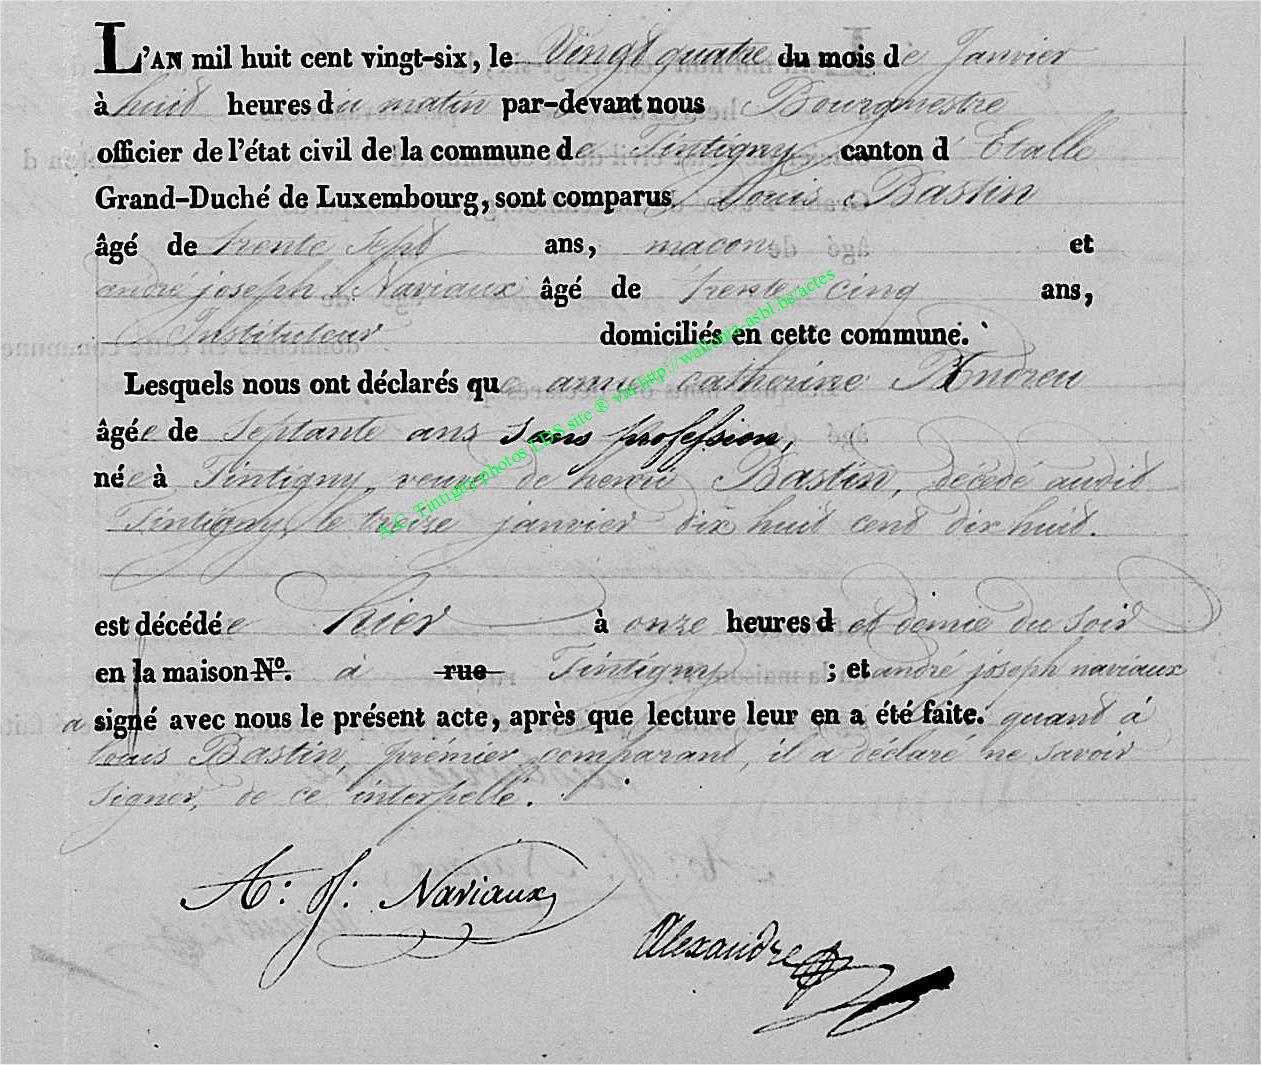 L'AN mil huit cent vingt-six, le Vingt quatre du mois de Janvier
à huit heures du matin par-devant nous Bourgmestre
officier de l'état civil de la commune de Tintigny canton d'Etalle
Grand-Duché de Luxembourg, sont comparus Louis Bastin
âgé de trente sept ans, macon et
andré joseph Naviaux âgé de trente cinq ans,
Instituteur domiciliés en cette commune.
Lesquels nous ont déclarés que anne catherine Andreu
âgée de septante ans sans profession,
née à Tintigny, veuve de henri Bastin, décédé audit
Tintigny le treize janvier dix huit cent dix huit.
est décédée hier à onze heures d et demie du soir
en la maison N°. à rue Tintigny ; et andré joseph naviaux
a signé avec nous le présent acte, après que lecture leur en a été faite. quand à
louis Bastin, prémier comparant, il a déclaré ne savoir
signer, de ce interpellé.
A: J: Naviaux
Alexandre
A.C. Tintigny photos LDS site ® via http://wallonia-asbl.be/actes